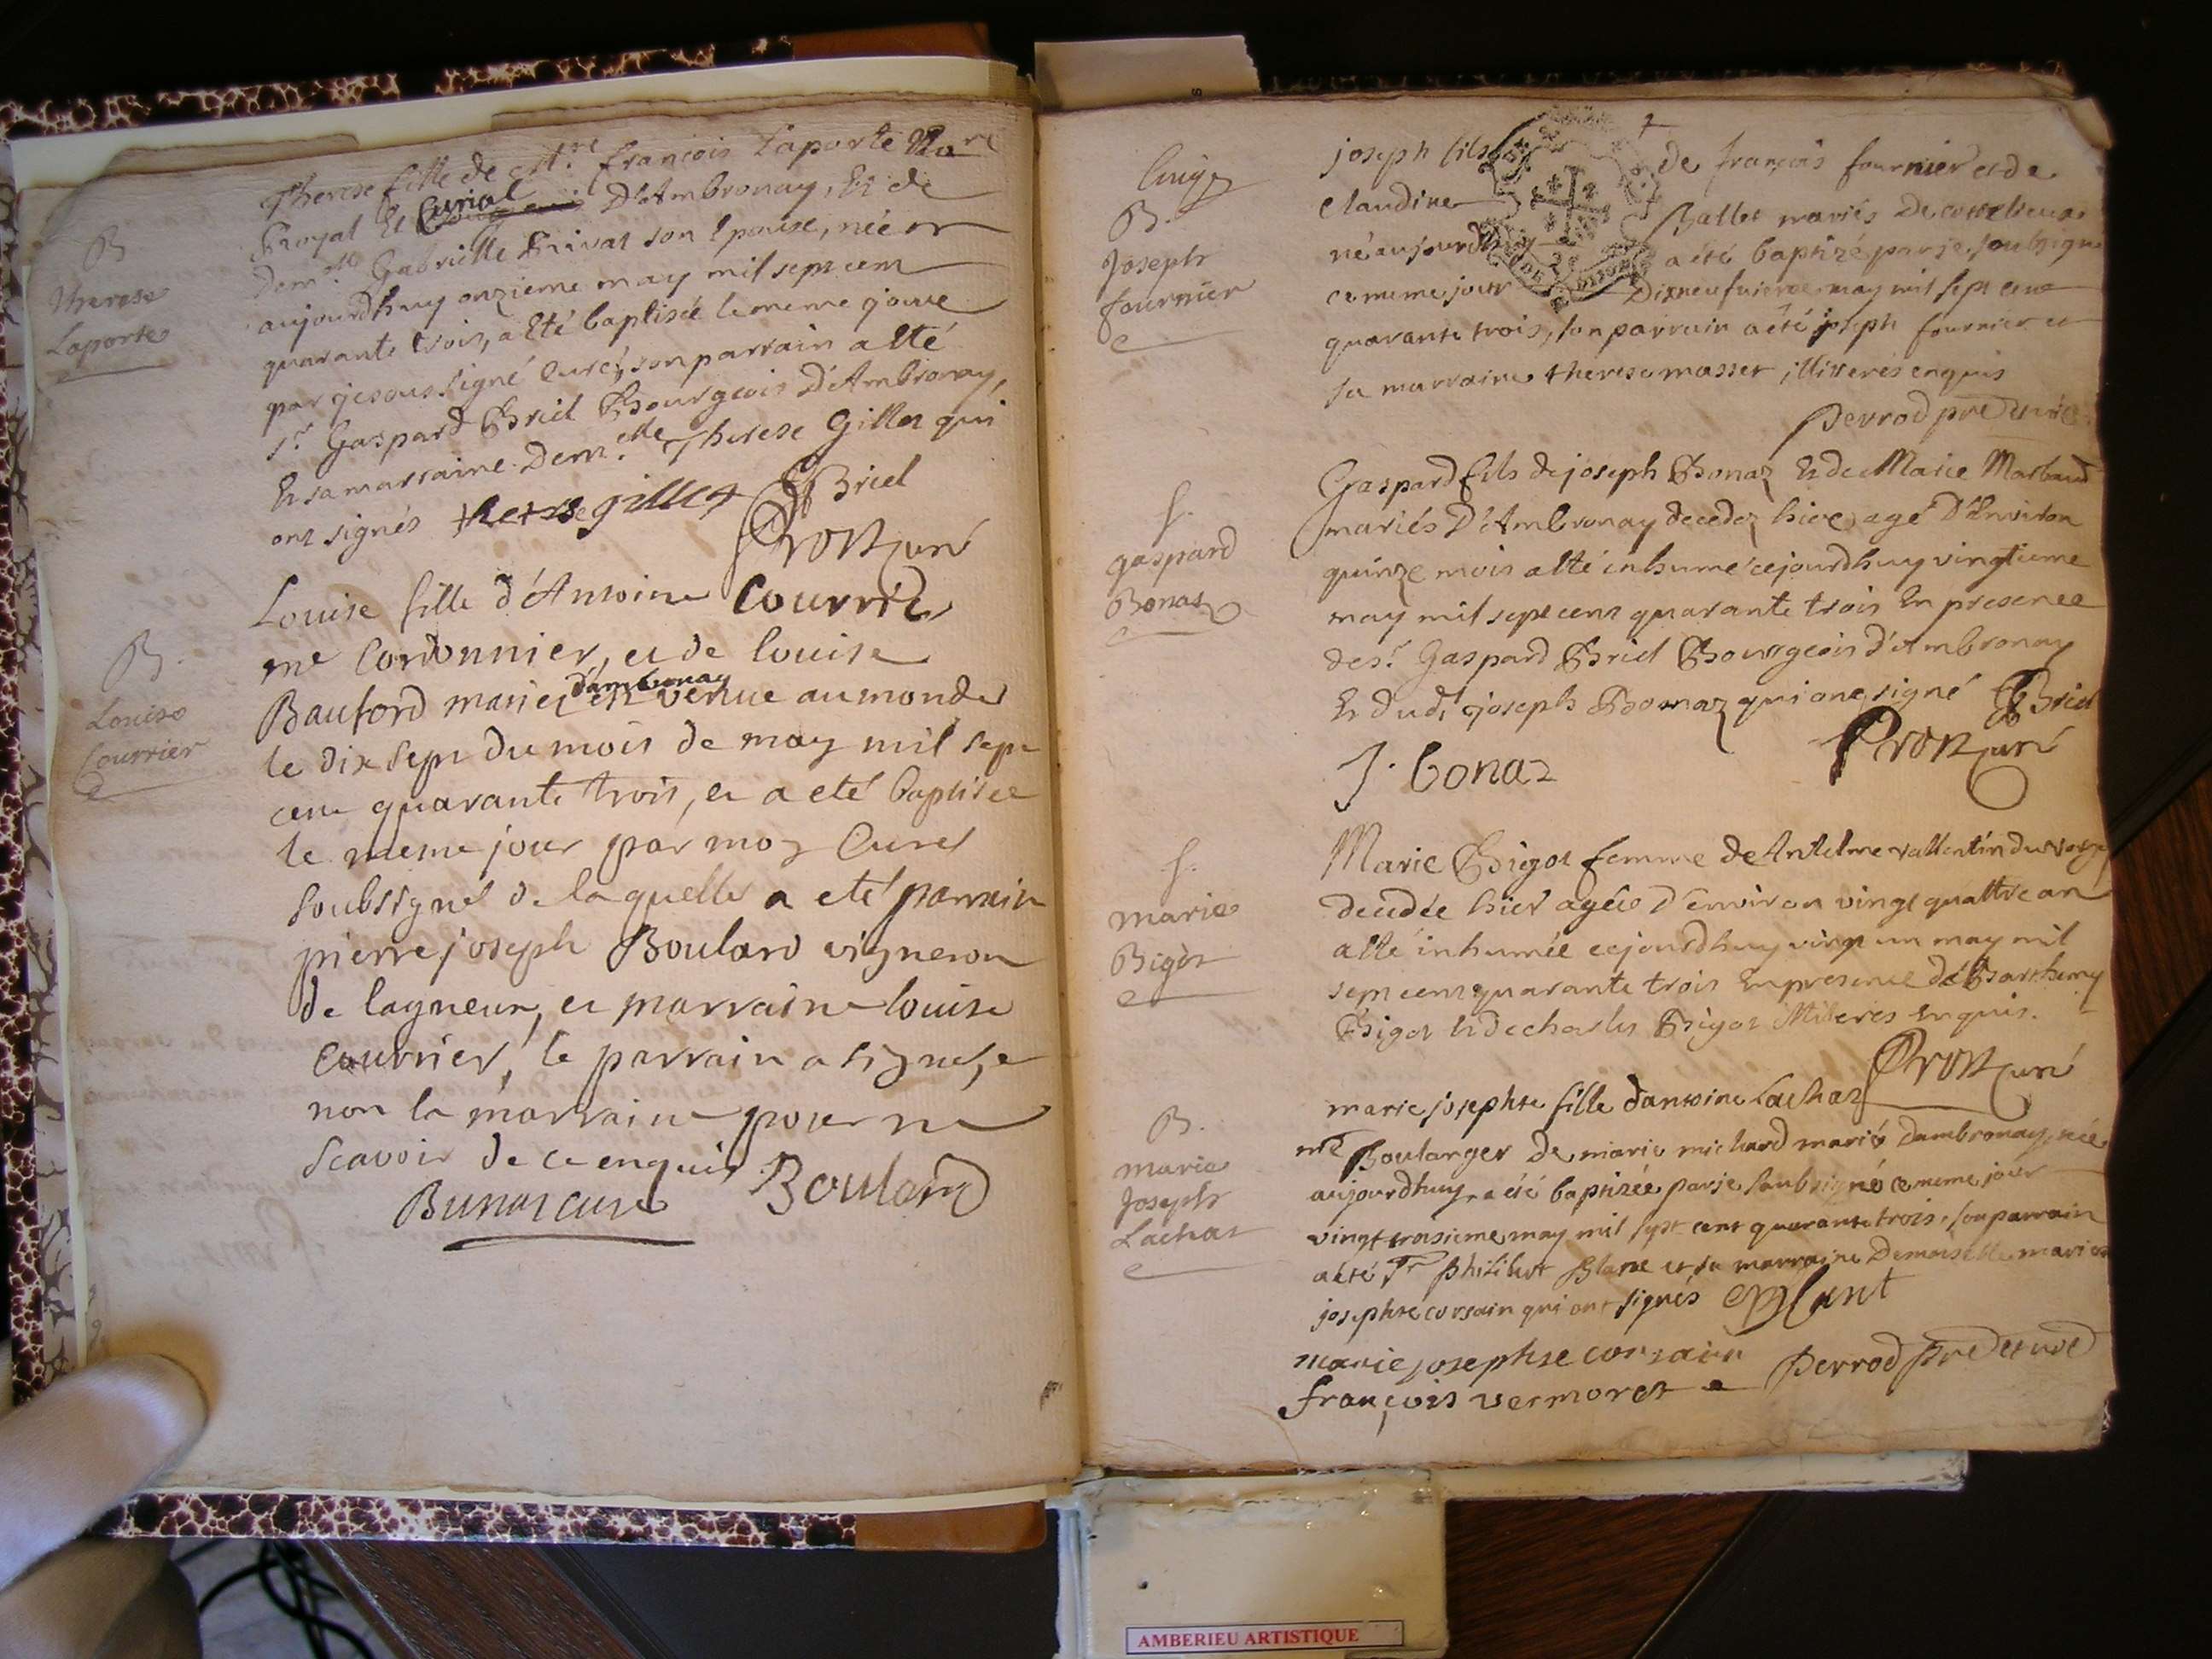 B
Therese
Laporte
Therese fille de Mtre francois Laporte No.re
Royal Et Curial D'Ambronay, Et de
Dem.elle Gabrielle Privat son Epouse, née
aujourdhuy onzieme may mil sept cent
quarante trois, a Eté baptisée le meme jour
par je soussigné Curé, son parrain a Eté
Sr. Gaspard Briel Bourgeois D'Ambronay,
Et sa marraine Dem.elle Therese Gillet qui
ont signés therese gillet Briel
curé
B.
Louise
Courrier
Louise fille d'Antoine Courrier
me Cordonnier, et de louise
Bauford mariez dambronay est venue au monde
le dix sept du mois de may mil sept
cent quarante trois, et a eté baptisee
le meme jour par moy Curé
soubsigné de laquelle a eté parrain
pierre joseph Boulard vigneron
de lagneux, et marraine louise
Courrier, le parrain a signé, et
non la marraine pour ne
scavoir de ce enquis Boulard
curé
B.
Joseph
fournier
joseph fils de françois fournier et de
claudine Ballet mariés De
né aujourdhuy a été baptizé par je soubsigné
ce meme jour Dixneufvieme may mil sept cent
quarante trois, son parrain a été joseph fournier et
sa marraine therese masset illiterés enquis
perrod pre
f.
gaspard
Bonaz
Gaspard fils de joseph Bonaz Et de Marie
mariés D'Ambronay decedez hier agé D'Environ
quinze mois a Eté inhumé cejourdhuy vingtieme
may mil sept cent quarante trois En presence
de sr. Gaspard Briel Bourgeois d'Ambronay
Et dud. joseph Bonaz qui ont signé Briel
J. bonaz curé
f.
marie
Bigot
Marie Bigot femme de Antelme vallentin du
decedée hier agée d'environ vingt quattre an
a Eté inhumée cejourdhuy vingt un may mil
sept cent quarante trois En presence de Barthemy
Bigot Et de charles Bigot illiteres Enquis.
curé
B.
marie
Joseph
Lachat
marie josephte fille dantoine Lachat
me Boulanger De marie michard mariés dambronay, née
aujourdhuy a été baptizée par je soubsigné ce meme jour
vingt troisieme may mil sept cent quarante trois, son parrain
a été Sr philibert Blanc et sa marraine Demoiselle marie
josephte corsain qui ont signés Blanc
marie josephte corsain perrod pre et
françois vermoret
AMBERIEU ARTISTIQUE